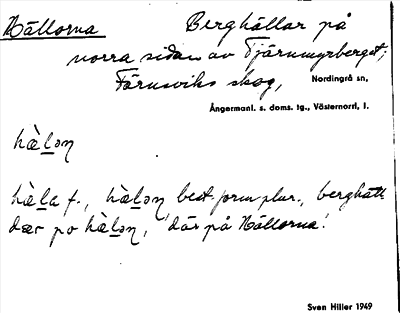 Hällorna Berghällar på
norra sidan av Tjärnmyrberget;
Färnsviks skog, Nordingrå sn,
Ångermanl. s. doms. tg., Västernorrl. l.
hæ̀lən
hæ̀la f., hæ̀lən best. form plur., berghäll
dær po hæ̀lən, 'där på Hällorna'.
Sven Hiller 1949